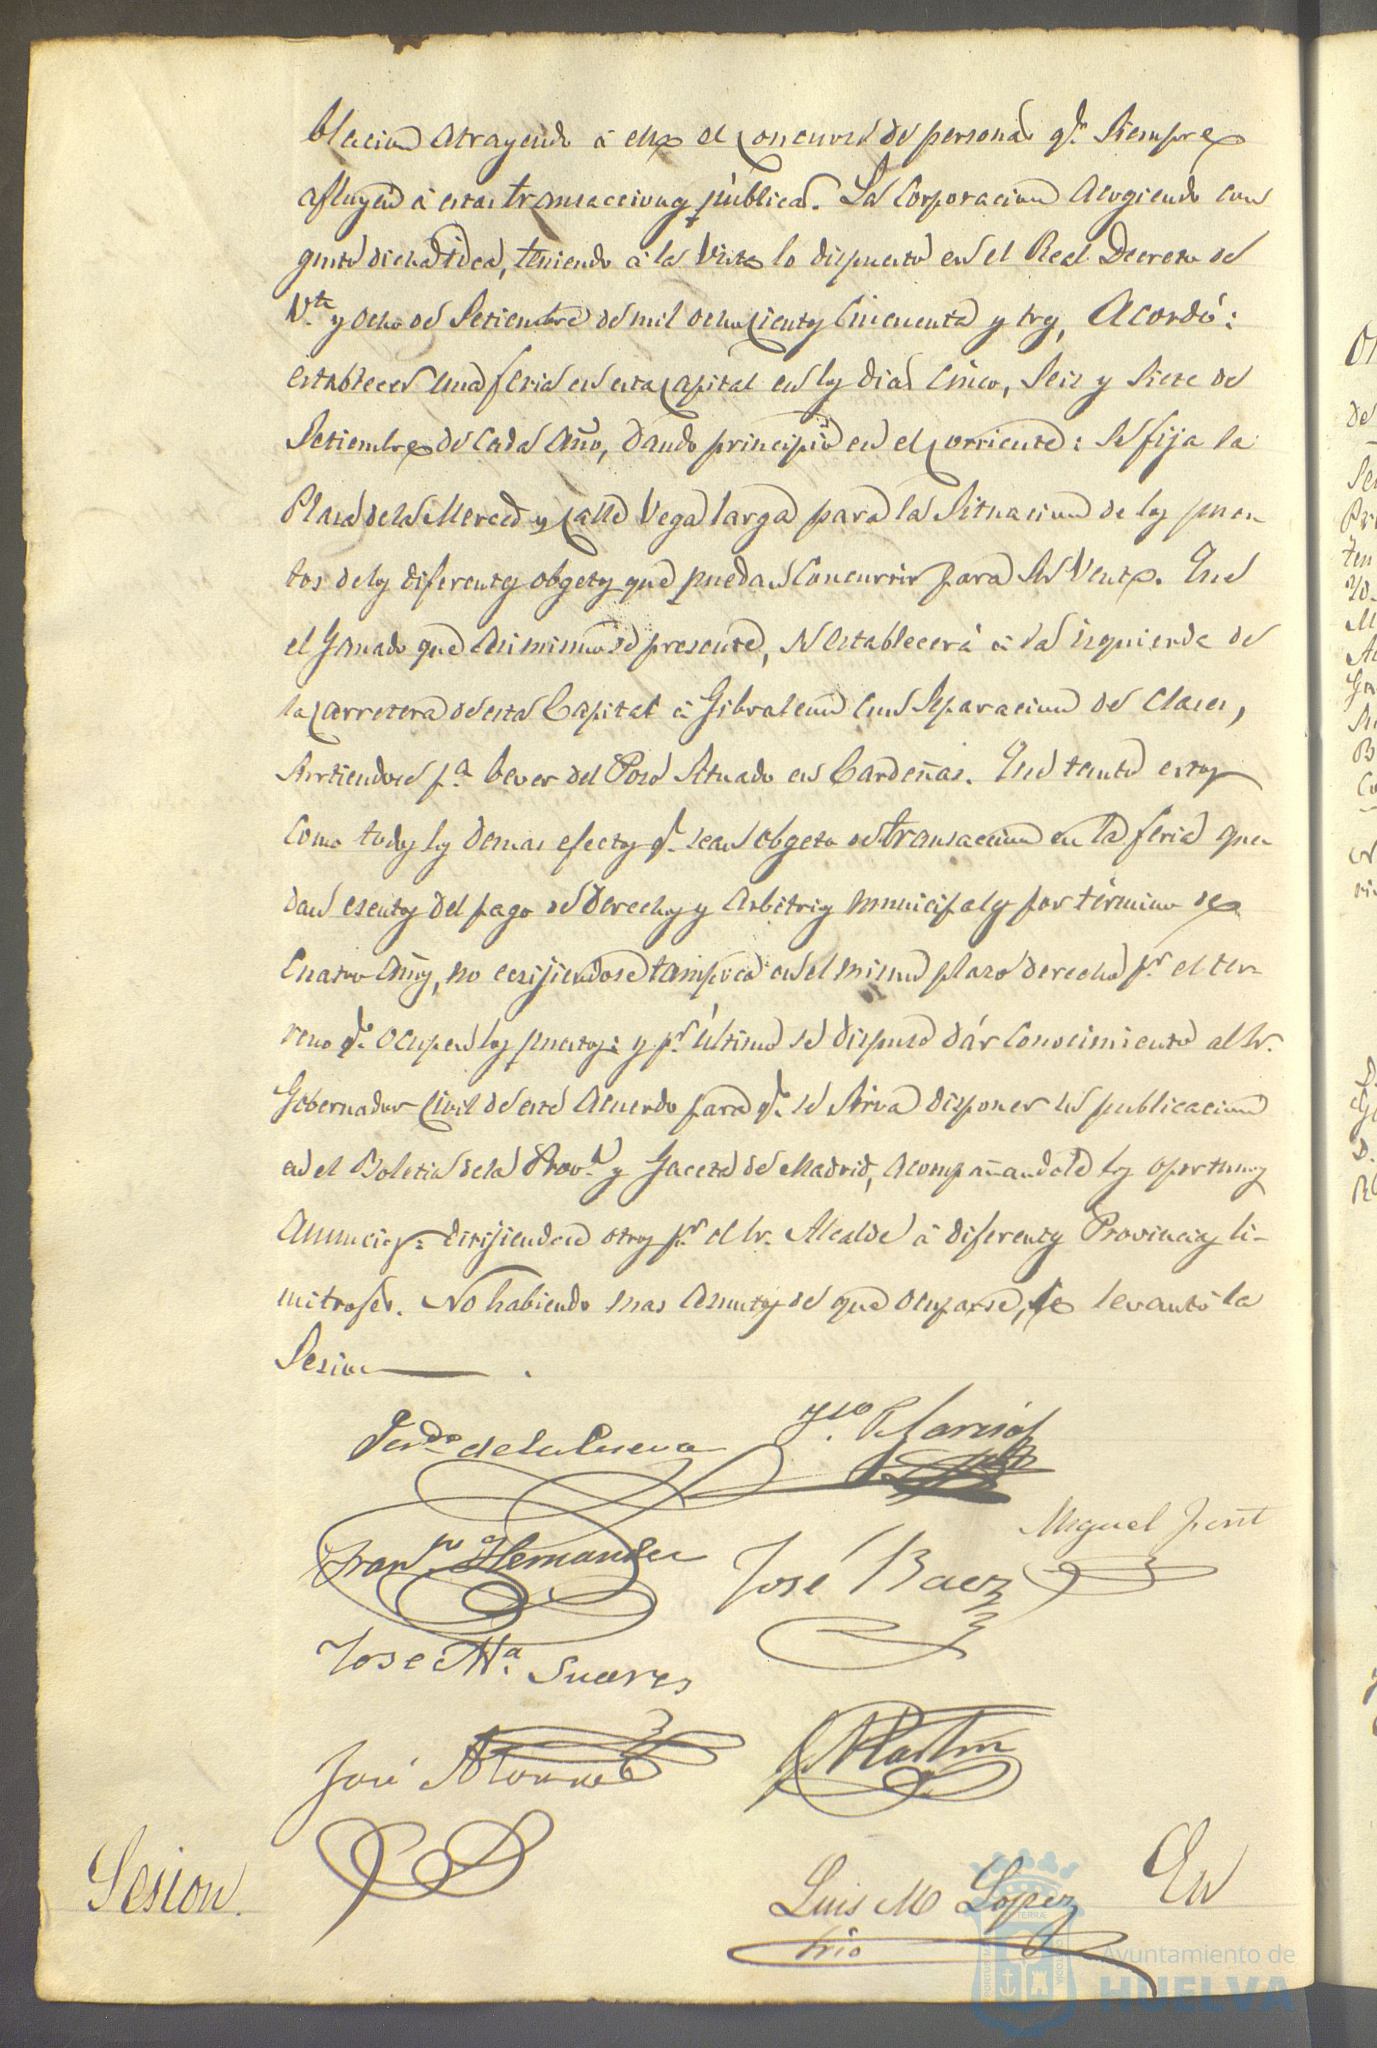 blacion atrayendo á ella el Concurso de personas qe. siempre
afluyen á estas transacciones públicas. La Corporacion acogiendo con
gusto dicha idea, teniendo á la vista lo dispuesto en el Real Decreto de
Vte. y ocho de Setiembre de mil ochocientos Cincuenta y tres, Acordó:
establecer una feria en esta Capital en los dias Cinco, Seis y Siete de
Setiembre de Cada Año, dando principio en el Corriente: Se fija la
Plaza de la Merced y Calle Vega larga para la Situacion de los pues-
tos de los diferentes obgetos que puedan Concurrir para su Venta. Que
el Ganado que asi mismo se presente, se establecerá á la izquierda de
la Carretera de esta Capital á Gibraleon con Separacion de Clases,
surtiendose pa. bever del Pozo situado en Cardeñas. Que tanto estos
como todos los demas efectos qe. sean obgeto de transaccion en la feria que-
dan esentos del pago de derechos y arbitrios municipales por término de
Cuatro Años, no ecsijiendose tampoco en el mismo plazo derecho pr. el ter-
reno qe. ocupen los puestos: y pr. último se dispuso dár Conocimiento al Sr.
Gobernador Civil de este Acuerdo para qe. se Sirva disponer su publicacion
en el Boletin de la Prova. y Gaceta de Madrid, acompañandole los oportunos
Anuncios: dirijiendose otros pr. el Sr. Alcalde á diferentes Provincias li-
mitrofes. No habiendo mas asuntos de que ocuparse, se levantó la
Sesion.
Ferdo. de la Cueva
Fco. Garcia
Franco. Hernandez
José Baez
Miguel Font
Jose Ma. Suares
José Alonso
Martin
Sesion.
Luis M Lopez
Srio
En
Ayuntamiento de
HUELVA